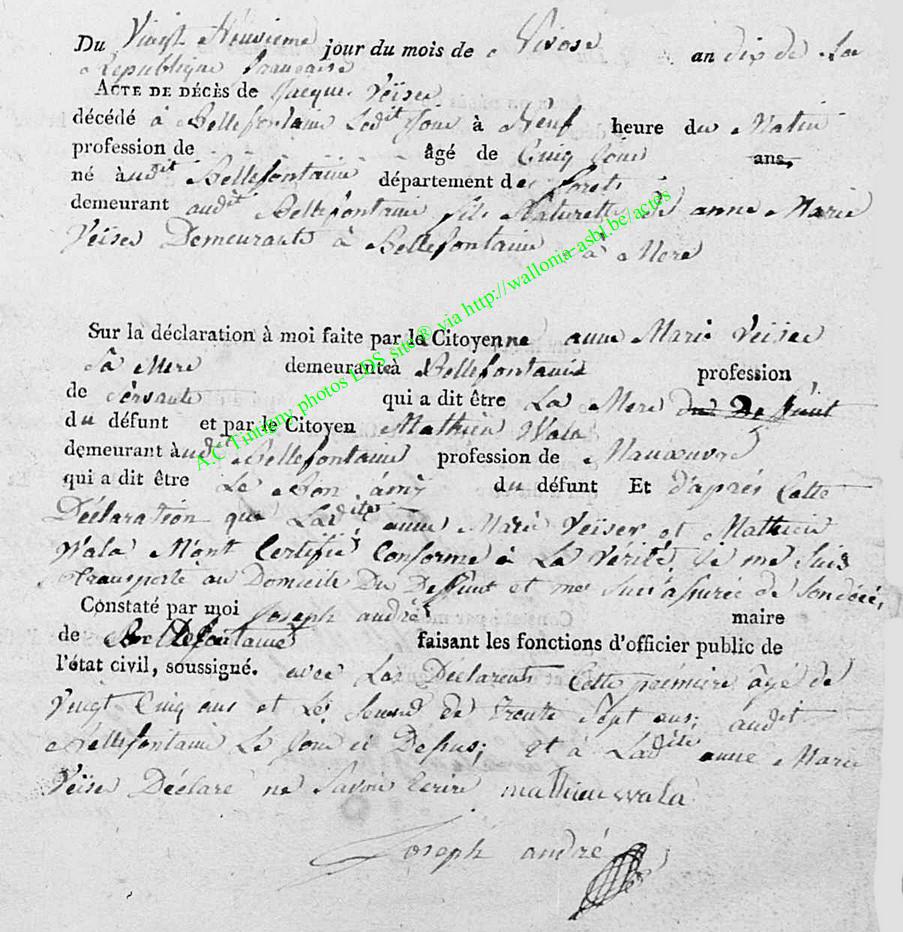 Du Vingt Neuvieme jour du mois de Nivose an dix de La
Republique française
ACTE DE DÉCÈS de Jacque Veïser
décédé à Bellefontaine Ledit Jour à Neuf heure du Matin
profession de âgé de Cinq Jour ans,
né audit Bellefontaine département de forets
demeurant audit Bellefontaine fils Naturelle de anne Marie
Veïser Demeurante à Bellefontaine sa Mere
Sur la déclaration à moi faite par la Citoyenne anne Marie Veïser
sa Mere demeurante à Bellefontaine profession
de servante qui a dit être La Mere du Defunt
du défunt et par le Citoyen Mathieu Wala
demeurant audit Bellefontaine profession de Manœuvre
qui a dit être Le Bon amy du défunt Et d'aprés Cette
Déclaration que Ladite anne Marie Veïser et Mathieu
Wala M'ont Certifié Conforme à La Vérité, Je me suis
transporté au Domicile Du Deffunt et me suis assuré de son décés,
Constaté par moi Joseph andré maire
de Bellefontaine faisant les fonctions d'officier public de
l'état civil, soussigné. avec Les Déclarents Cette premiere agé de
Vingt Cinq ans et Le second de Trente Sept ans; audit
Bellefontaine Le Jour ci Dessus; et à Ladite anne Marie
Veïser Déclaré ne Savoir Ecrire mathieu wala
Joseph andré
A.C Tintigny photos LDS site® via http://wallonia-asbl.be/actes